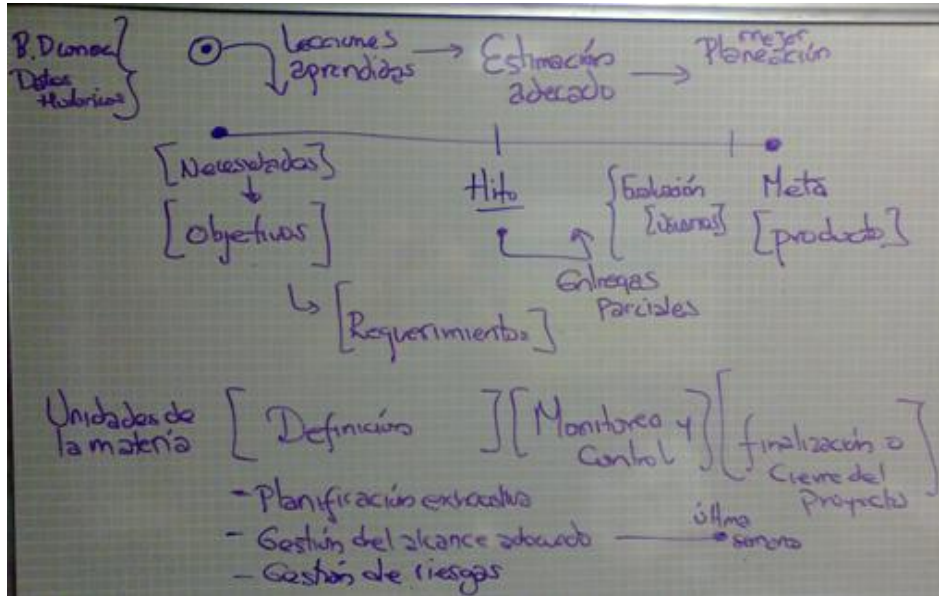 B. D
Datos
Historicos
Lecciones
aprendidas
Estimación
adecado
mejor
Planeación
[Necesidades]
[Objetivos]
[Requerimientos]
Hito
Entregas
Parciales
[usuarios]
Meta
[producto]
Unidades de
la materia
[Definición]
[Monitoreo y
Control]
[finalización o
Cierre del
Proyecto]
- Planificación exhaustiva
- Gestión del alcance adecuado
última
semana
- Gestión de riesgos